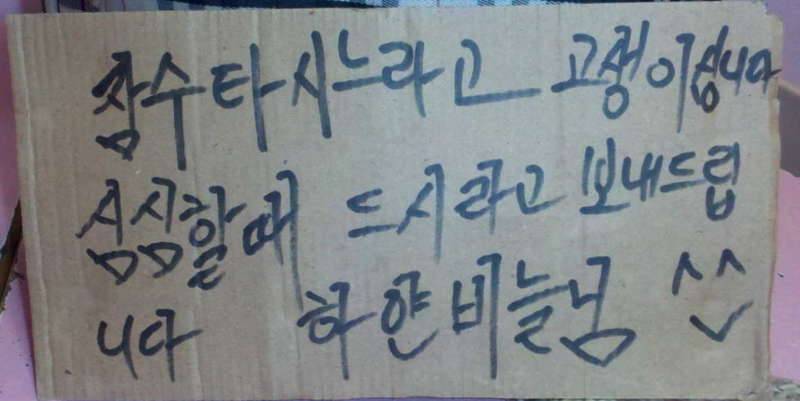 잠수타시느라고 고생이십니다
심심할때 드시라고 보내드립
니다 하얀비늘님 ^^